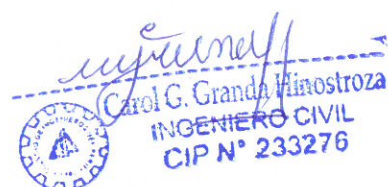 Carol G. Granda Hinostroza
INGENIERO CIVIL
CIP N° 233276